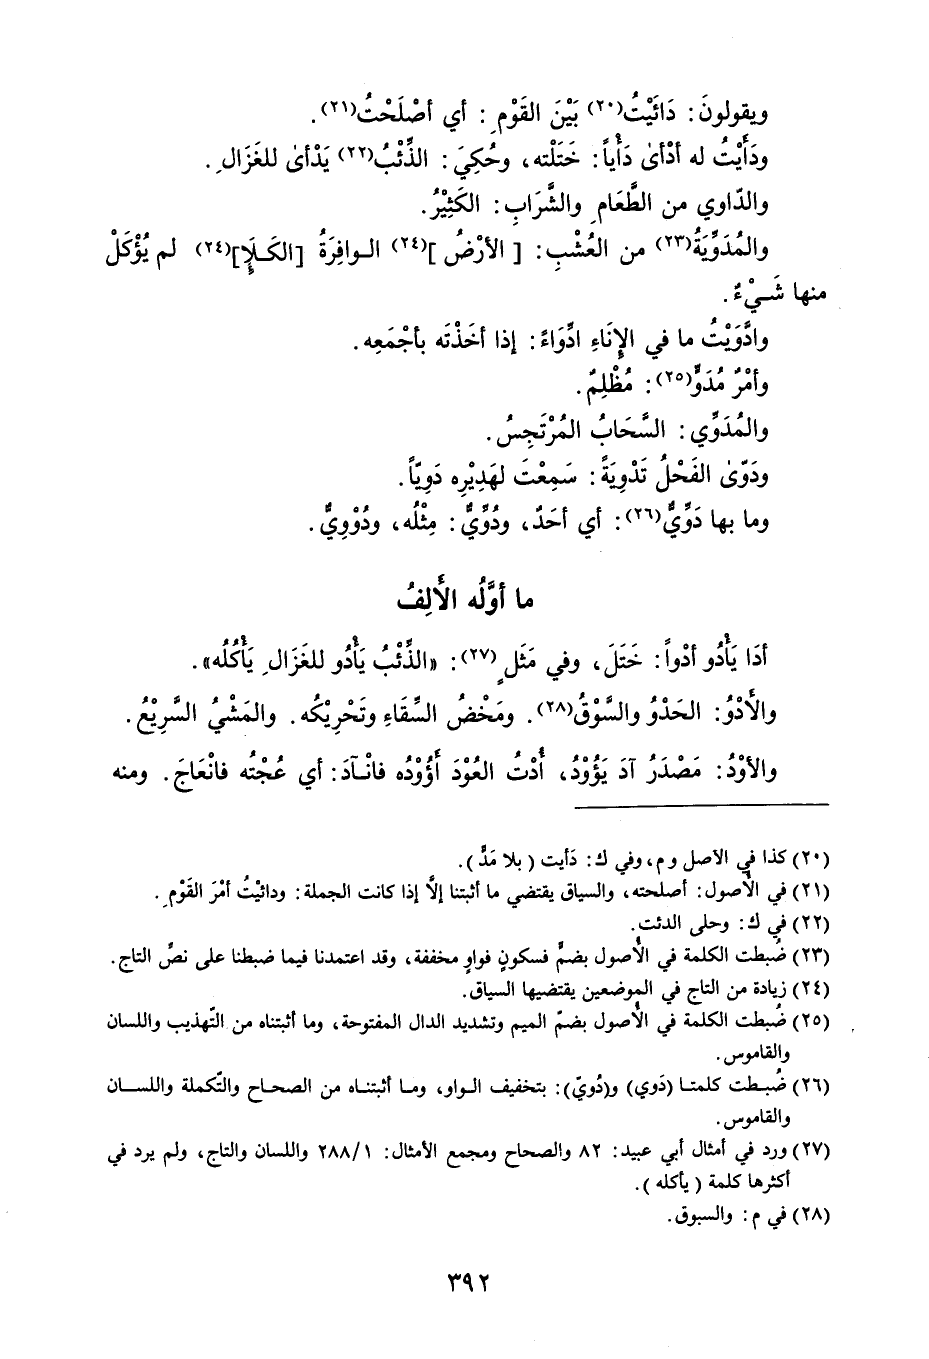 ويقولونَ: دَائَيْتُ(٢٠) بَيْنَ القَوْمِ: أي أصْلَحْتُ(٢١).
ودَأَيْتُ له أدْأىٰ دَأْياً: خَتَلْته، وحُكِيَ: الذِّئْبُ(٢٢) يَدْأىٰ للغَزَالِ.
والدّاوي من الطَّعَامِ والشَّرَابِ: الكَثِيْرُ.
والمُدَوِّيَةُ(٢٣) من العُشْبِ: [الأرْضُ](٢٤) الوافِرَةُ [الكَلَإِ](٢٤) لم يُؤْكَلْ
منها شَيْءٌ.
وادَّوَيْتُ ما في الإِنَاءِ ادِّوَاءً: إذا أخَذْتَه بأجْمَعِه.
وأمْرٌ مُدَوٍّ(٢٥): مُظْلِمٌ.
والمُدَوِّي: السَّحَابُ المُرْتَجِسُ.
ودَوّىٰ الفَحْلُ تَدْوِيَةً: سَمِعْتَ لهَدِيْرِه دَوِيّاً.
وما بها دَوِّيٌّ(٢٦): أي أحَدٌ، ودُوِّيٌّ: مِثْلُه، ودُوْوِيٌّ.
ما أوَّلُه الأَلِفُ
أدَا يَأْدُو أدْواً: خَتَلَ، وفي مَثَلٍ(٢٧): «الذِّئْبُ يَأْدُو للغَزَالِ يَأْكُلُه».
والأَدْوُ: الحَدْوُ والسَّوْقُ(٢٨). ومَخْضُ السِّقَاءِ وتَحْرِيْكُه. والمَشْيُ السَّرِيْعُ.
والأوْدُ: مَصْدَرُ آدَ يَؤُوْدُ، أُدْتُ العُوْدَ أَؤُوْدُه فانْآدَ: أي عُجْتُه فانْعَاجَ. ومنه
(٢٠) كذا في الأصل وم، وفي ك: دَأيت (بلا مَدٍّ).
(٢١) في الأُصول: أصلحته، والسياق يقتضي ما أثبتنا إلَّا إذا كانت الجملة: ودائيْتُ أمْرَ القَوْمِ.
(٢٢) في ك: وحلى الدئت.
(٢٣) ضُبطت الكلمة في الأُصول بضمٍّ فسكونٍ فواوٍ مخففة، وقد اعتمدنا فيما ضبطنا على نصِّ التاج.
(٢٤) زيادة من التاج في الموضعين يقتضيها السياق.
(٢٥) ضُبطت الكلمة في الأُصول بضمّ الميم وتشديد الدال المفتوحة، وما أثبتناه من التّهذيب واللسان
والقاموس.
(٢٦) ضُبطت كلمتا (دَوي) و(دُويّ): بتخفيف الواو، وما أثبتناه من الصحاح والتّكملة واللسان
والقاموس.
(٢٧) ورد في أمثال أبي عبيد: ٨٢ والصحاح ومجمع الأمثال: ٢٨٨/١ واللسان والتاج، ولم يرد في
أكثرها كلمة (يأكله).
(٢٨) في م: والسبوق.
٣٩٢